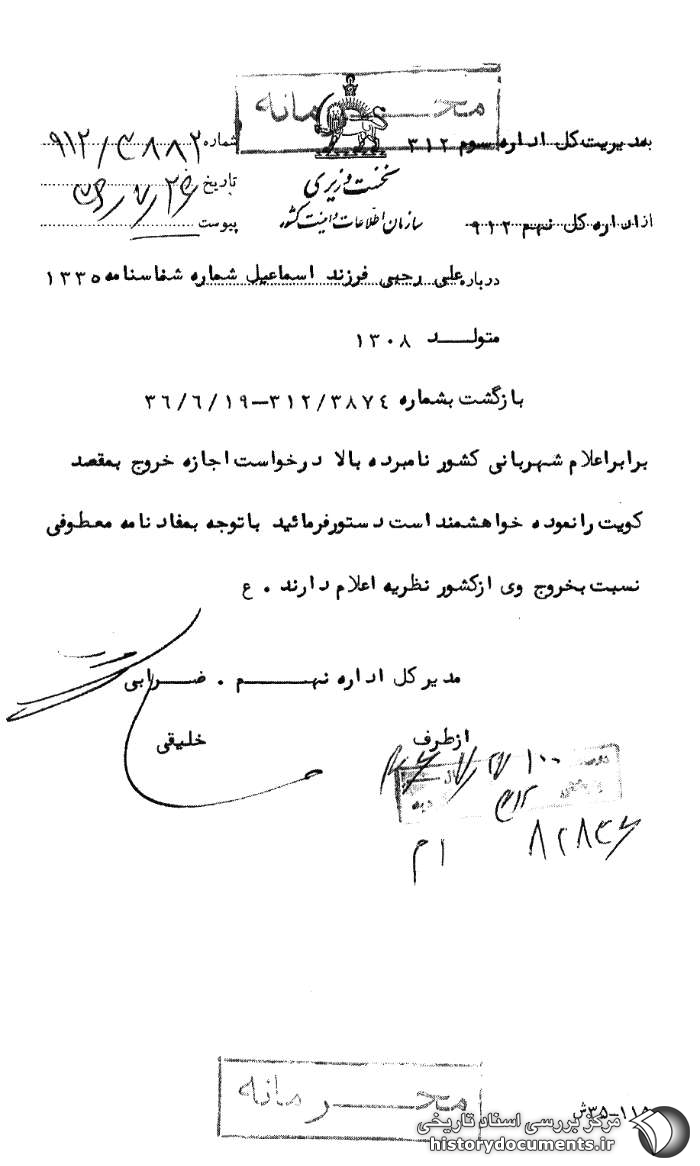 محرمانه
بمدیریت کل اداره سوم ۳۱۲
شماره ۹۱۲/۳۸۸۲
نخست وزیری
تاریخ ۳۶/۷/۲۶
سازمان اطلاعات و امنیت کشور
از اداره کل نهم ۹۱۲
پیوست
درباره علی رجبی فرزند اسماعیل شماره شناسنامه ۱۳۳۵
متولد ۱۳۰۸
بازگشت بشماره ۳۱۲/۳۸۷٤-۳٦/٦/۱۹
برابر اعلام شهربانی کشور نامبرده بالا درخواست اجازه خروج بمقصد
کویت را نموده خواهشمند است دستور فرمائید با توجه بمفاد نامه معطوفی
نسبت بخروج وی از کشور نظریه اعلام دارند . ع
مدیر کل اداره نهم . ضرابی
از طرف خلیقی
محرمانه
۱۱۵-۳۵ش
مرکز بررسی اسناد تاریخی
historydocuments.ir